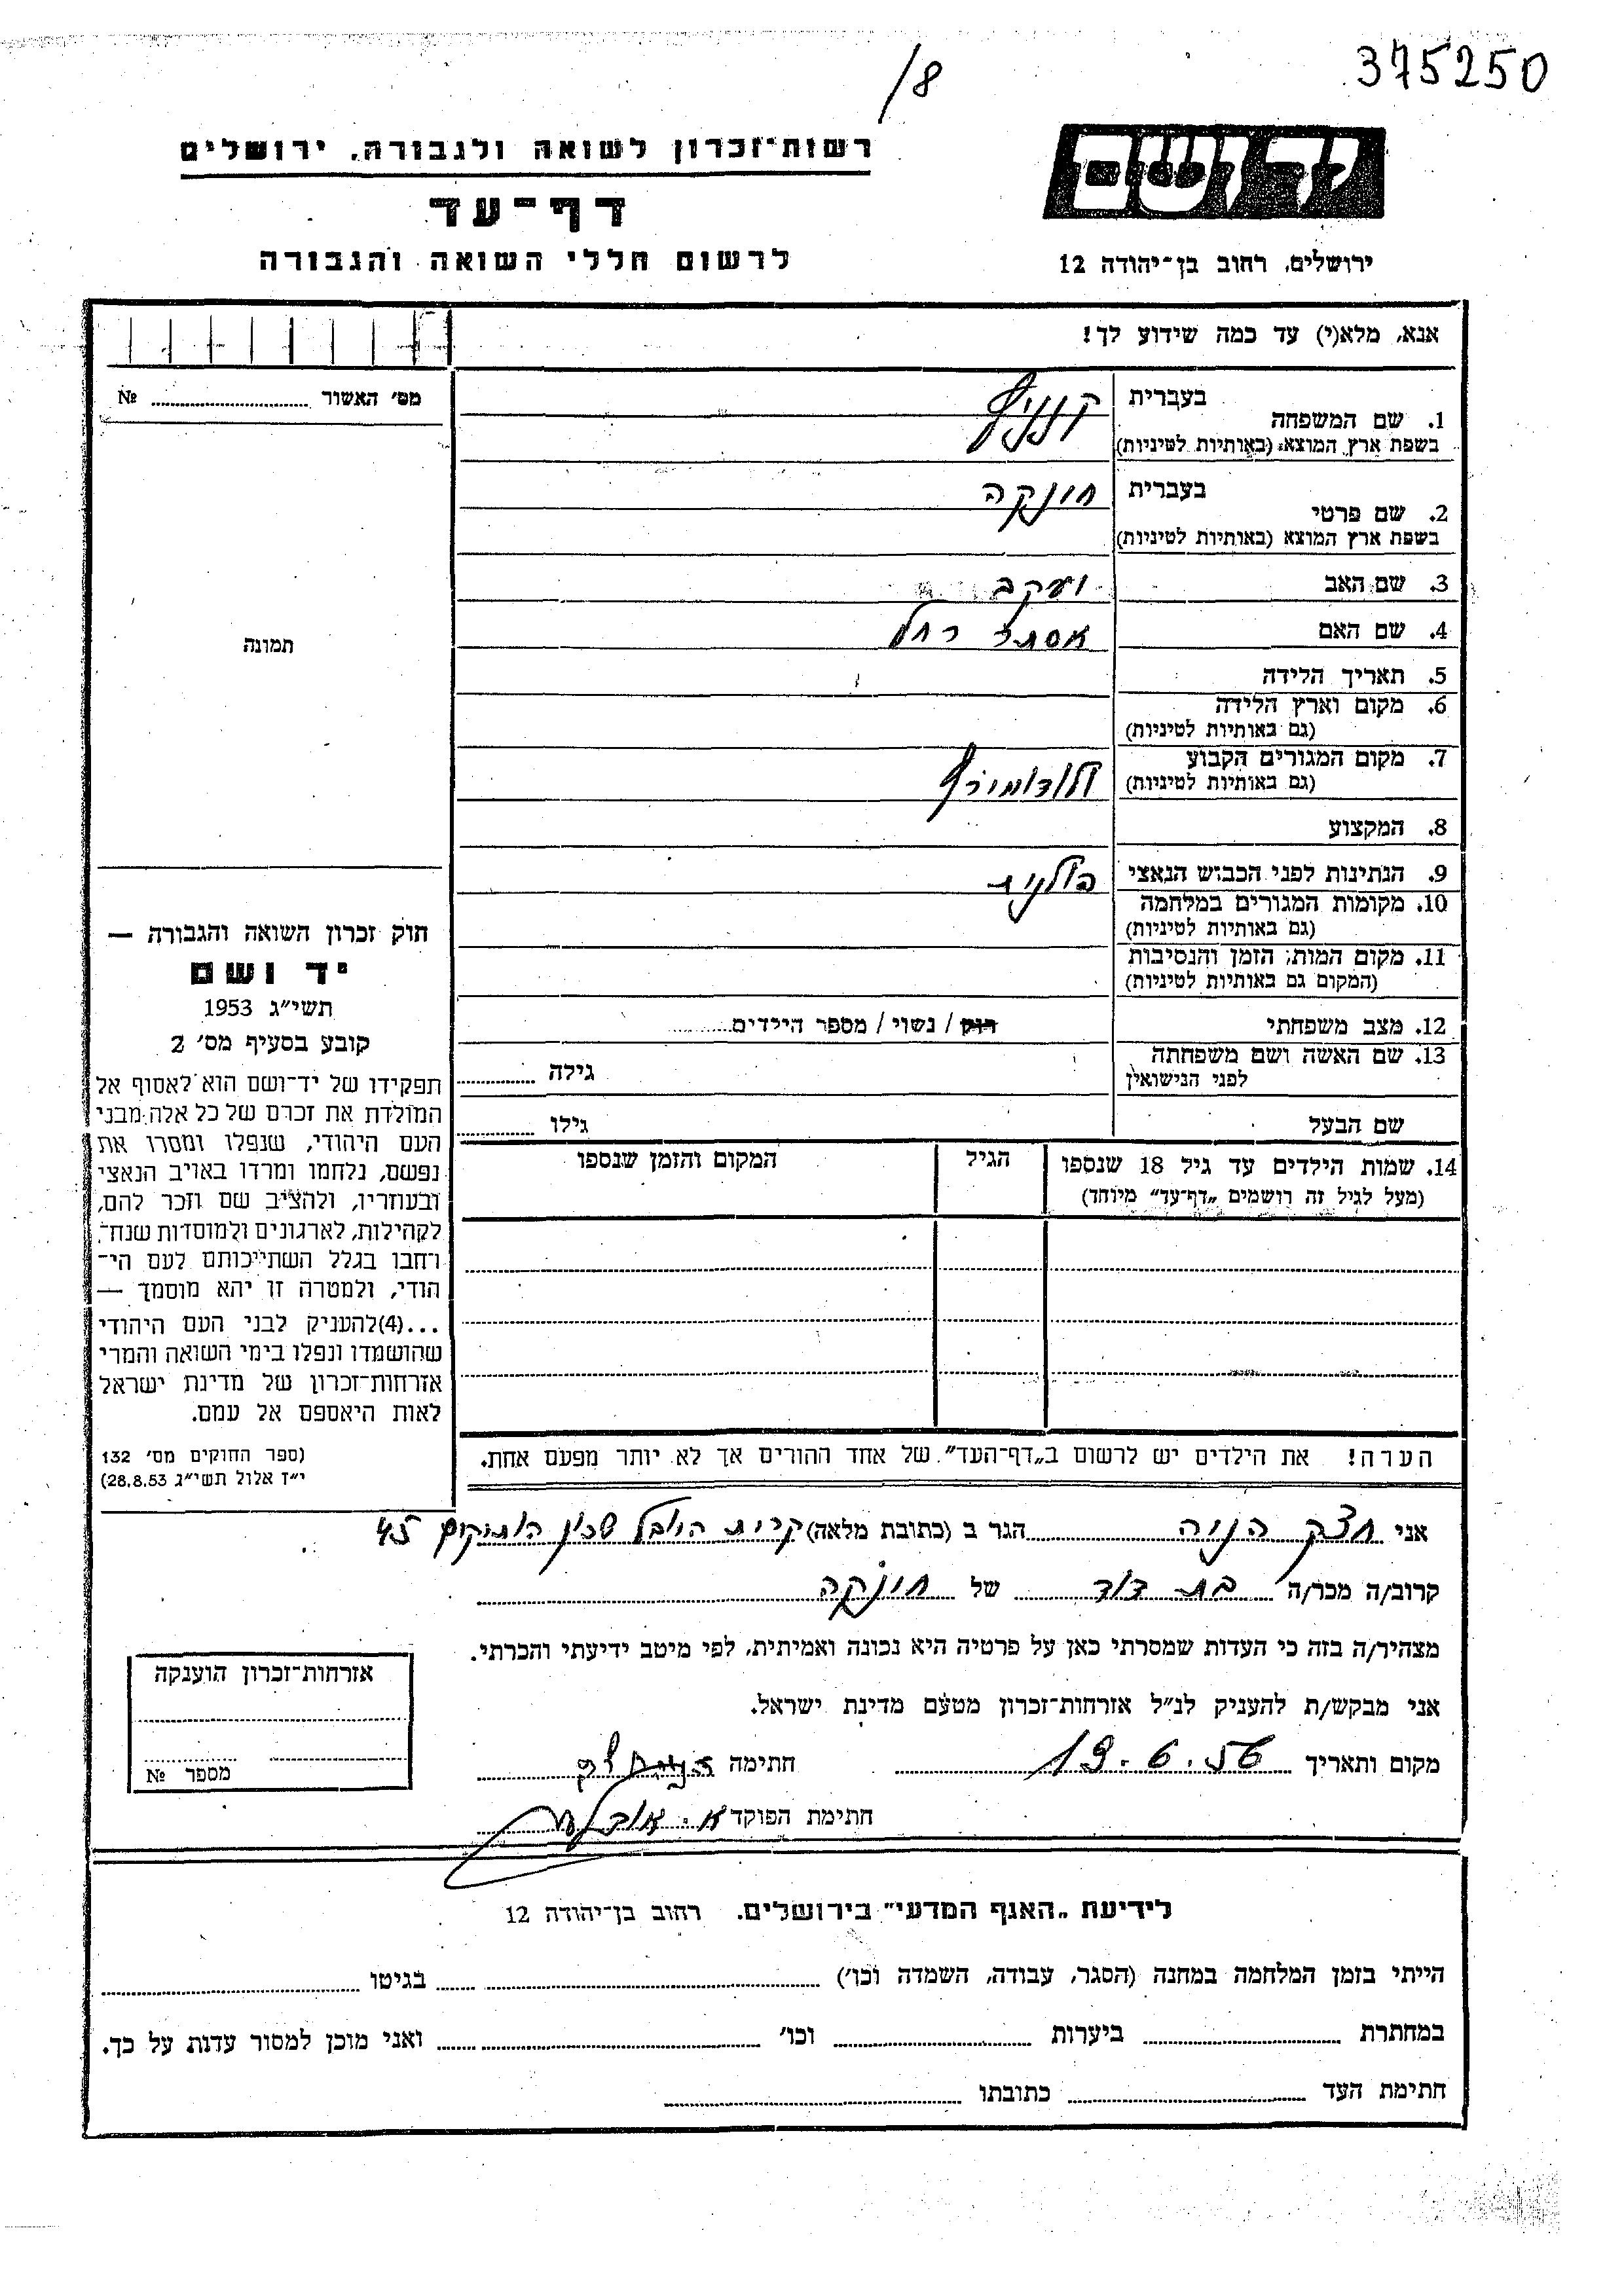 375250
/8
יד ושם
רשות־זכרון לשואה ולגבורה, ירושלים
דף־עד
לרשום חללי השואה והגבורה
ירושלים, רחוב בן־יהודה 12
אנא, מלא(י) עד כמה שידוע לך!
מס׳ האשור № ..........
בעברית
1. שם המשפחה
בשפת ארץ המוצא (באותיות לטיניות)
בעברית חונקה
2. שם פרטי
בשפת ארץ המוצא (באותיות לטיניות)
3. שם האב יעקב
4. שם האם אסתר רחל
תמונה
5. תאריך הלידה
6. מקום וארץ הלידה
(גם באותיות לטיניות)
7. מקום המגורים הקבוע
(גם באותיות לטיניות)
8. המקצוע
9. הנתינות לפני הכבוש הנאצי פולנית
10. מקומות המגורים במלחמה
(גם באותיות לטיניות)
11. מקום המות, הזמן והנסיבות
(המקום גם באותיות לטיניות)
12. מצב משפחתי רווק / נשוי / מספר הילדים..........
13. שם האשה ושם משפחתה
לפני הנישואין
גילה ..........
שם הבעל גילו ..........
14. שמות הילדים עד גיל 18 שנספו
(מעל לגיל זה רושמים „דף־עד״ מיוחד)
הגיל
המקום והזמן שנספו
הערה! את הילדים יש לרשום ב„דף־העד״ של אחד ההורים אך לא יותר מפעם אחת.
חוק זכרון השואה והגבורה —
יד ושם
תשי״ג 1953
קובע בסעיף מס׳ 2
תפקידו של יד־ושם הוא לאסוף אל
המולדת את זכרם של כל אלה מבני
העם היהודי, שנפלו ומסרו את
נפשם, נלחמו ומרדו באויב הנאצי
ובעוזריו, ולהציב שם וזכר להם,
לקהילות, לארגונים ולמוסדות שנח־
רחבו בגלל השתייכותם לעם הי־
הודי, ולמטרה זו יהא מוסמך —
...(4)להעניק לבני העם היהודי
שהושמדו ונפלו בימי השואה והמרי
אזרחות־זכרון של מדינת ישראל
לאות היאספם אל עמם.
(ספר החוקים מס׳ 132
י״ז אלול תשי״ג 28.8.53)
אני חצק הניה הגר ב (כתובת מלאה) קרית היובל שכון הותיקים 45
קרוב/ה מכר/ה בת דוד של חונקה
מצהיר/ה בזה כי העדות שמסרתי כאן על פרטיה היא נכונה ואמיתית, לפי מיטב ידיעתי והכרתי.
אני מבקש/ת להעניק לנ״ל אזרחות־זכרון מטעם מדינת ישראל.
מקום ותאריך 19.6.56 חתימה
חתימת הפוקד
אזרחות־זכרון הוענקה
מספר №
לידיעת „האגף המדעי״ בירושלים, רחוב בן־יהודה 12
הייתי בזמן המלחמה במחנה (הסגר, עבודה, השמדה וכו׳) .......... בגיטו ..........
במחתרת .......... ביערות .......... וכו׳ .......... ואני מוכן למסור עדות על כך.
חתימת העד .......... כתובתו ..........